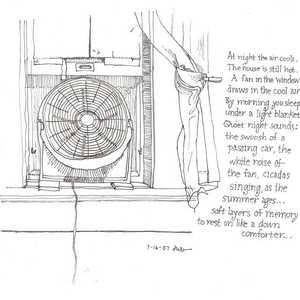 At night the air cools.
The house is still hot.
A fan in the window
draws in the cool air
By morning you sleep
under a light blanket
Quiet night sounds:
the swoosh of a
passing car, the
white noise of
the fan, cicadas
singing, as the
summer ages...
soft layers of memory
to rest on like a down
comforter...
7-16-07